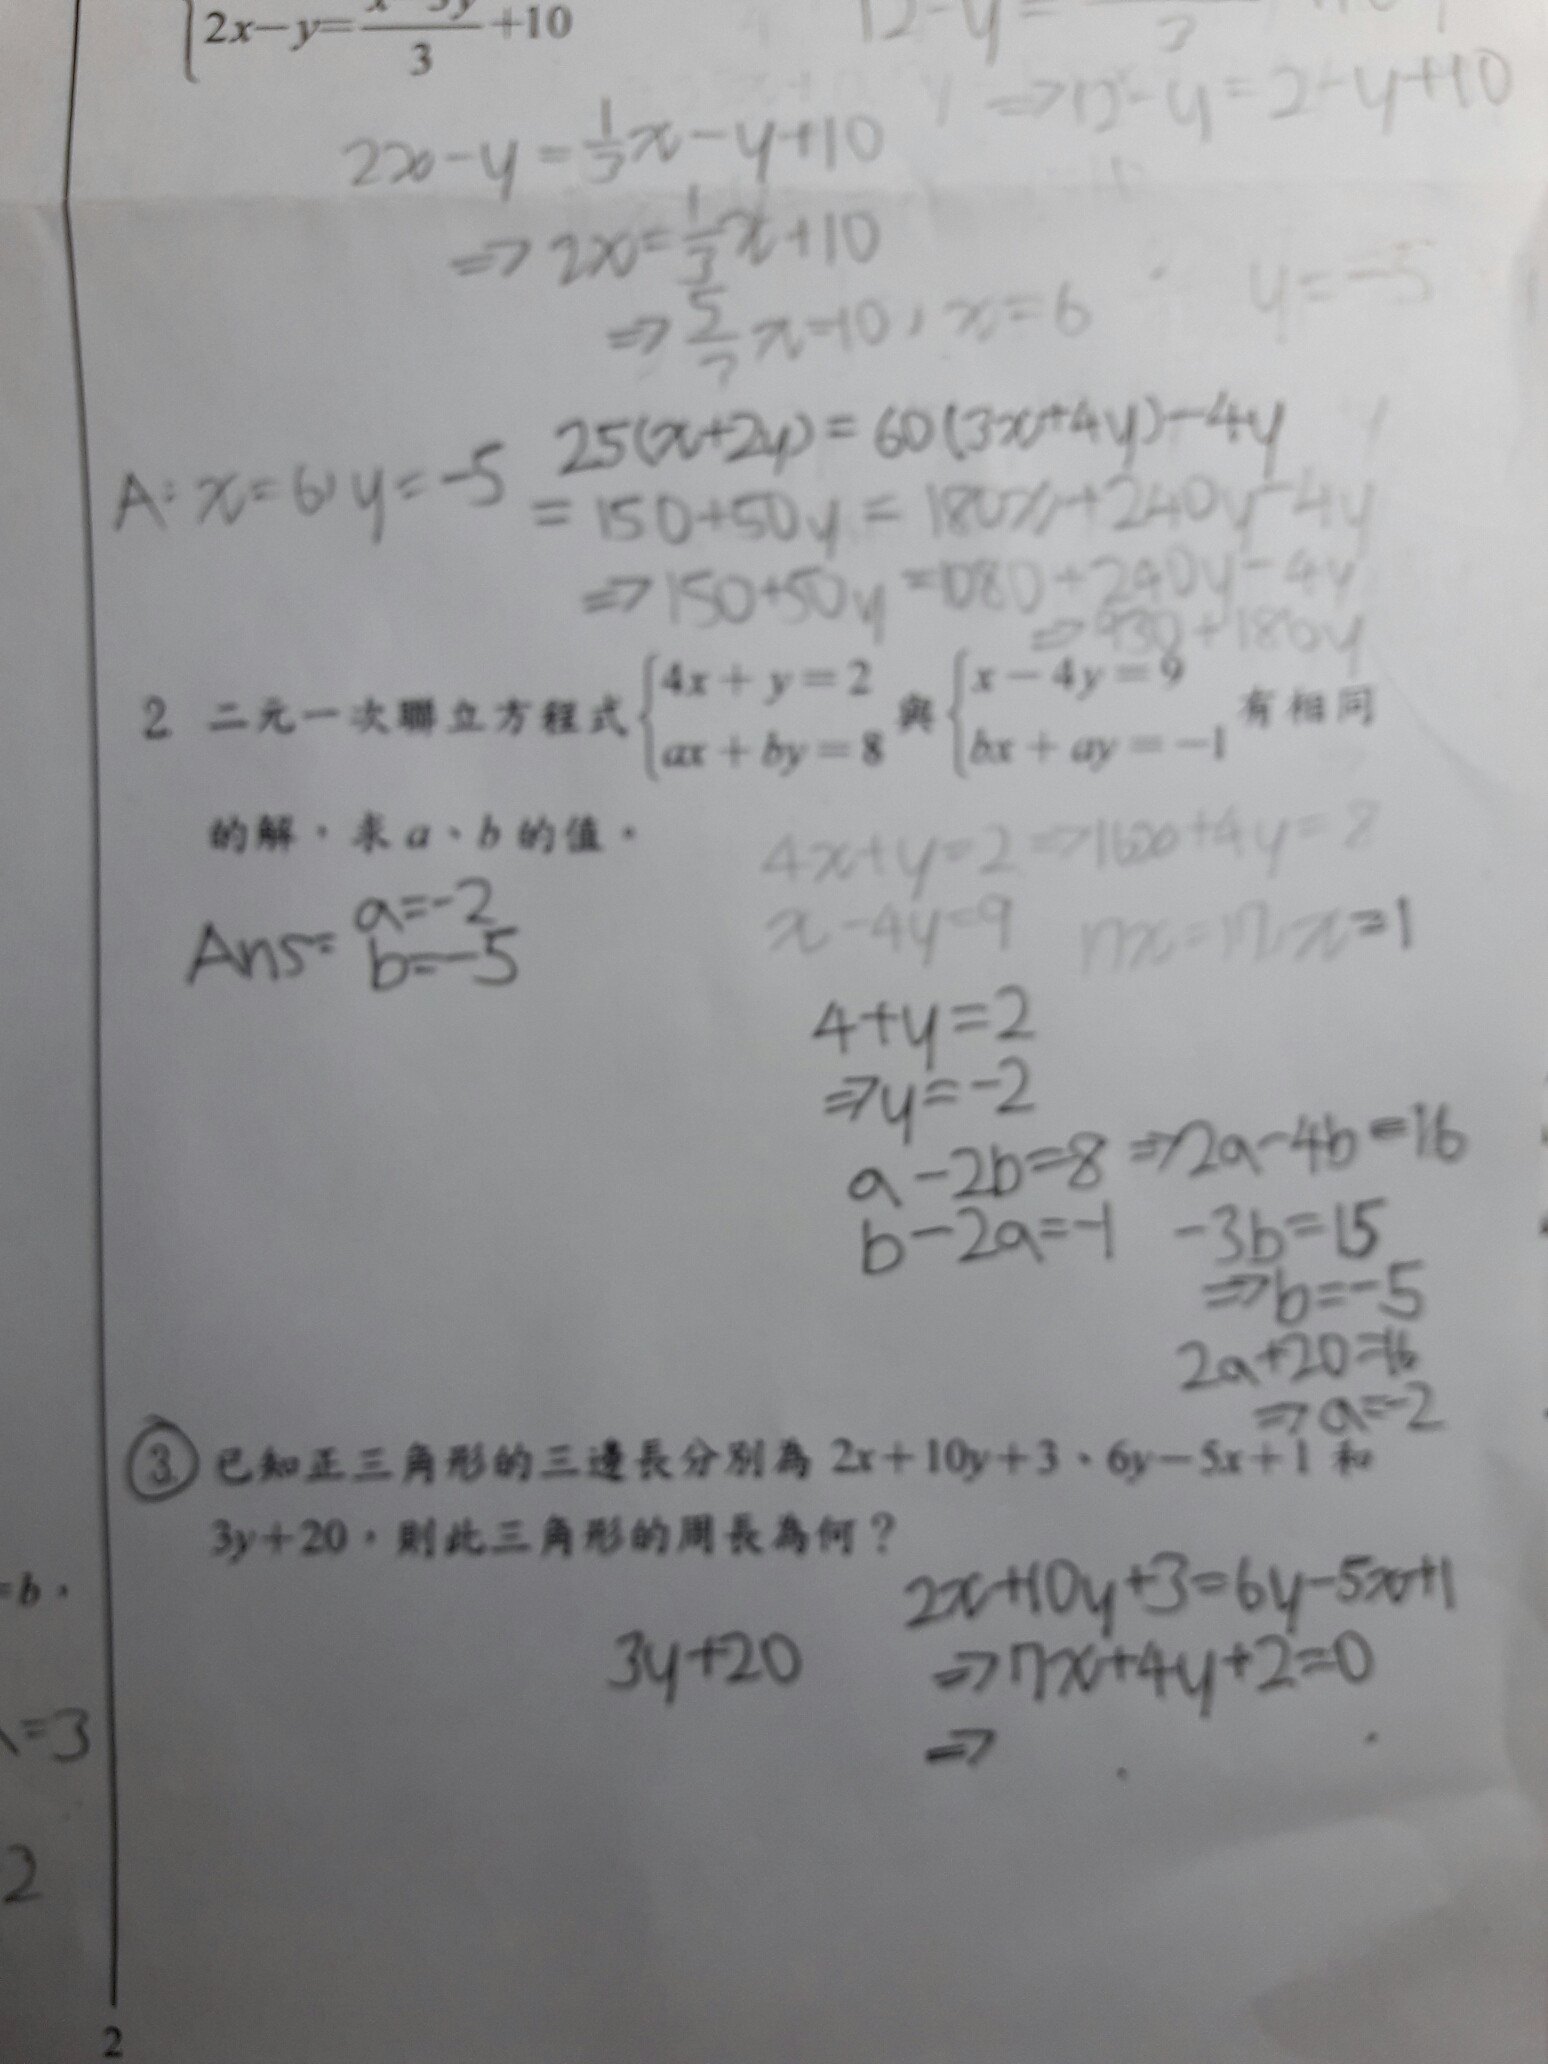 2x-y=x-3y/3+10
12-y=
⇒12-y=2-y+10
2x-y=1/3x-y+10
⇒2x=1/3x+10
⇒5/3x=10,x=6
y=-5
A:x=6,y=-5
25(x+2y)=60(3x+4y)-4y
=150+50y=180x+240y-4y
⇒150+50y=1080+240y-4y
⇒930+186y
2 二元一次聯立方程式{4x+y=2 ax+by=8 與{x-4y=9 bx+ay=-1 有相同
的解,求a、b的值。
4x+y=2⇒16x+4y=8
x-4y=9 17x=17,x=1
Ans= a=-2
b=-5
4+y=2
⇒y=-2
a-2b=8⇒2a-4b=16
b-2a=-1 -3b=15
⇒b=-5
2a+20=16
⇒a=-2
3. 已知正三角形的三邊長分別為2x+10y+3、6y-5x+1和
3y+20,則此三角形的周長為何?
2x+10y+3=6y-5x+1
3y+20 ⇒7x+4y+2=0
⇒
=b,
=3
2
2